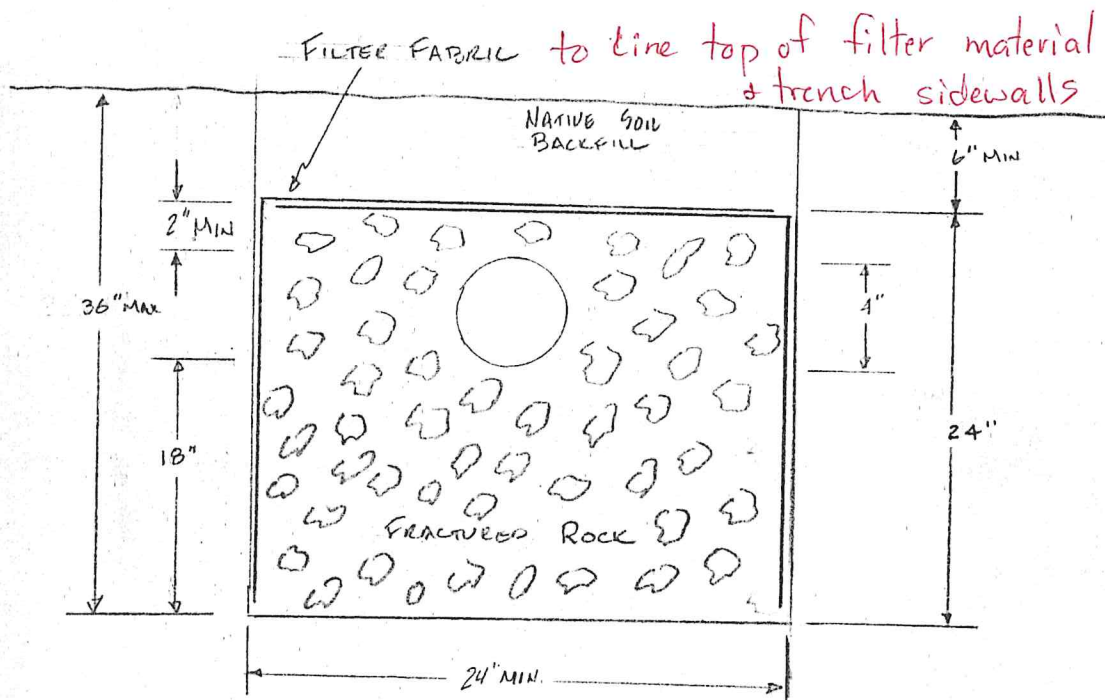 FILTER FABRIC to line top of filter material
& trench sidewalls
NATIVE SOIL
BACKFILL
6" MIN
2" MIN
36" MAX
4"
18"
24"
FRACTURED ROCK
24" MIN.